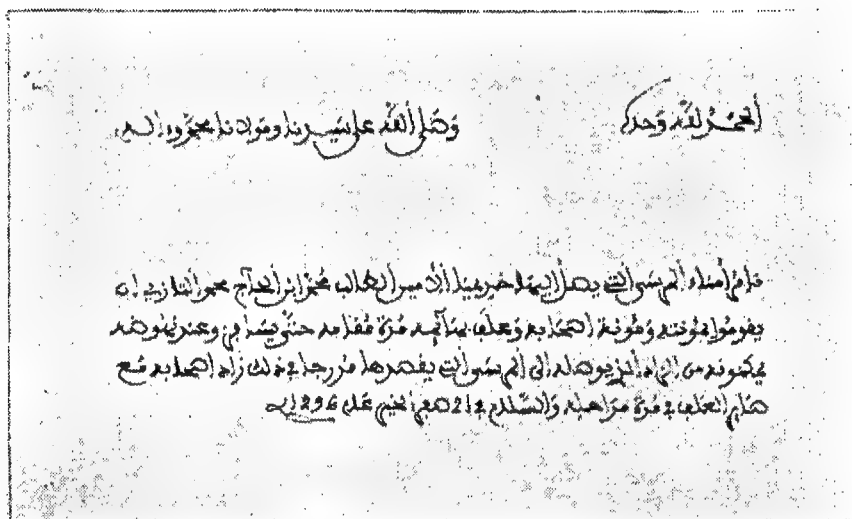 الحمد لله وحده وصلى الله على سيدنا ومولانا محمد وءاله
نامر أمناء المرسى التي يصل إليها خديمنا الأمين الطالب محمد ابن الحاج محمد التازي أن
يقوموا بمؤنته ومؤنة أصحابه وعلف بهائمه مدة مقامه حتى يسافر وعند نهوضه
يمكنونه من الزاد الذي يوصله إلى المرسى التي يقصدها مدرجا في ذلك زاد أصحابه مع
العلف في مدة مراحله والسلام في 21 صفر الخير عام 1296